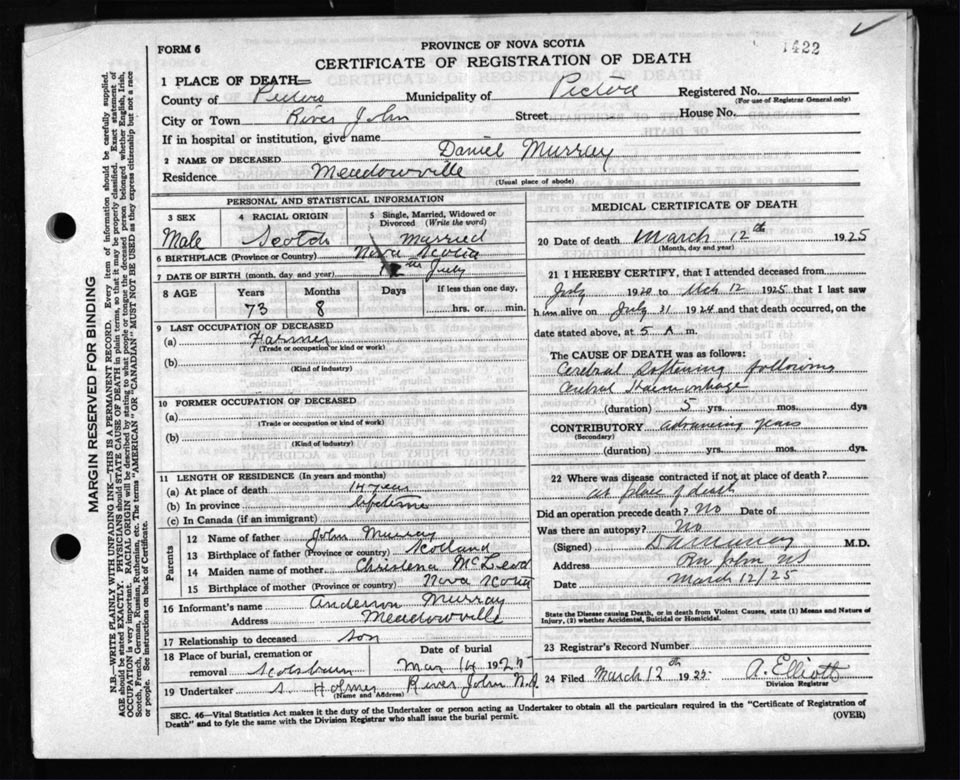 1422
FORM 6
PROVINCE OF NOVA SCOTIA
CERTIFICATE OF REGISTRATION OF DEATH
1 PLACE OF DEATH—
County of Pictou Municipality of Pictou Registered No.
(For use of Registrar General only)
City or Town River John Street House No.
If in hospital or institution, give name
2 NAME OF DECEASED Daniel Murray
Residence Meadowville
(Usual place of abode)
PERSONAL AND STATISTICAL INFORMATION
3 SEX 4 RACIAL ORIGIN 5 Single, Married, Widowed or Divorced (Write the word)
Male Scotch Married
6 BIRTHPLACE (Province or Country) Nova Scotia
7 DATE OF BIRTH (month, day and year) July
8 AGE Years Months Days If less than one day,
73 8 hrs. or min.
9 LAST OCCUPATION OF DECEASED
(a) Farmer
(Trade or occupation or kind or work)
(b)
(Kind of industry)
10 FORMER OCCUPATION OF DECEASED
(a)
(Trade or occupation or kind or work)
(b)
(Kind of industry)
11 LENGTH OF RESIDENCE (In years and months)
(a) At place of death 14 years
(b) In province lifetime
(c) In Canada (if an immigrant)
Parents
12 Name of father John Murray
13 Birthplace of father (Province or country) Scotland
14 Maiden name of mother Christena McLeod
15 Birthplace of mother (Province or country) Nova Scotia
16 Informant's name Anderson Murray
Address Meadowville
17 Relationship to deceased son
18 Place of burial, cremation or removal Scotsburn Date of burial Mar 14 1925
19 Undertaker S. Holmes River John N.S.
(Name and Address)
MEDICAL CERTIFICATE OF DEATH
20 Date of death March 12th 1925
(Month, day and year)
21 I HEREBY CERTIFY, that I attended deceased from
July 1920 to Mch 12 1925 that I last saw
him alive on July 31 1924 and that death occurred, on the
date stated above, at 5 A m.
The CAUSE OF DEATH was as follows:
Cerebral Softening following
Cerebral Haemorrhage
(duration) 5 yrs. mos. dys
CONTRIBUTORY advancing years
(Secondary)
(duration) yrs. mos. dys.
22 Where was disease contracted if not at place of death?
at place of death
Did an operation precede death? No Date of
Was there an autopsy? No
(Signed) D A Murray M.D.
Address Riv John NS
Date March 12/25
State the Disease causing Death, or in death from Violent Causes, state (1) Means and Nature of
Injury, (2) whether Accidental, Suicidal or Homicidal.
23 Registrar's Record Number
24 Filed March 12th 1925 A. Elliott
Division Registrar
SEC. 46—Vital Statistics Act makes it the duty of the Undertaker or person acting as Undertaker to obtain all the particulars required in the "Certificate of Registration of
Death" and to fyle the same with the Division Registrar who shall issue the burial permit.
(OVER)
MARGIN RESERVED FOR BINDING
N.B.—WRITE PLAINLY WITH UNFADING INK—THIS IS A PERMANENT RECORD. Every item of information should be carefully supplied.
AGE should be stated EXACTLY. PHYSICIANS should STATE CAUSE OF DEATH in plain terms, so that it may be properly classified. Exact statement of
OCCUPATION is very important. RACIAL ORIGIN will be described by stating to what people or tongue the deceased person belonged whether English, Irish,
Scotch, French, German, Russian, Ruthenian, etc. The terms "AMERICAN" OR "CANADIAN" MUST NOT BE USED as they express citizenship but not a race
or people. See instructions on back of Certificate.